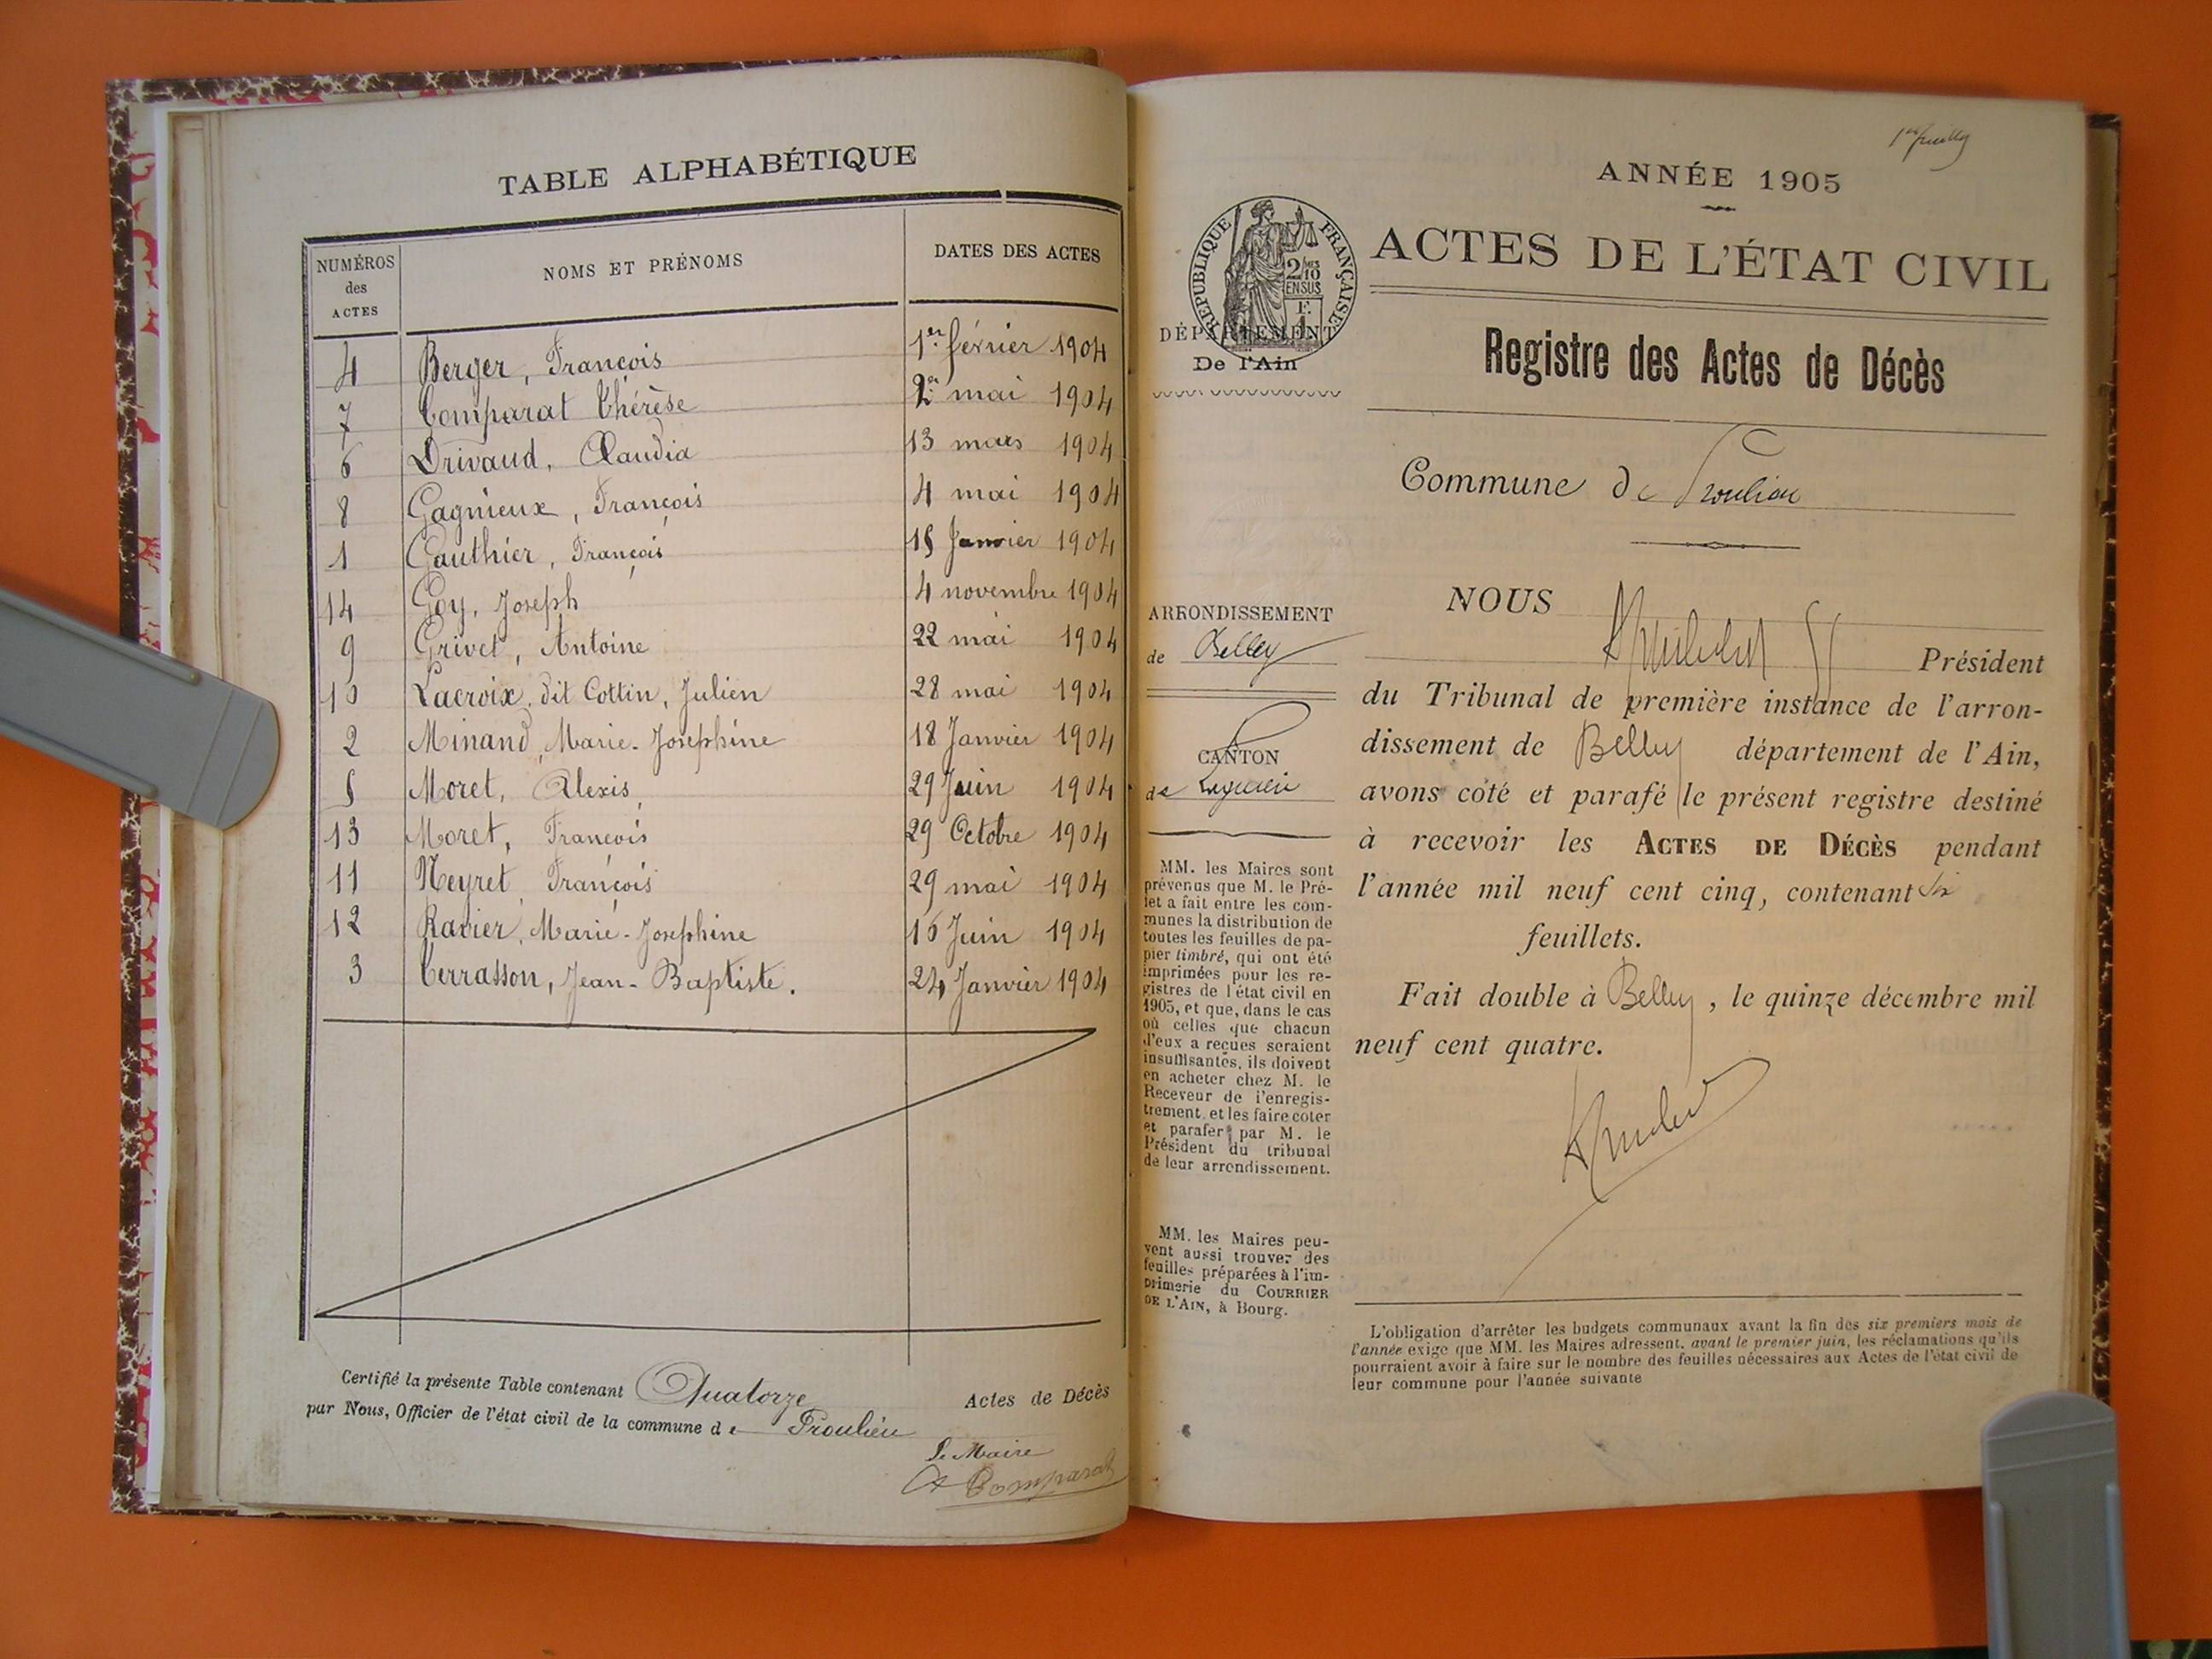 TABLE ALPHABÉTIQUE
NUMÉROS des ACTES
NOMS ET PRÉNOMS
DATES DES ACTES
4 Berger, François 1er février 1904
7 Comparat Thérèse 2 mai 1904
6 Drivaud, Claudia 13 mars 1904
8 Gagnieux, François 4 mai 1904
1 Gauthier, François 15 Janvier 1904
14 Goy, Joseph 4 novembre 1904
9 Grivet, Antoine 22 mai 1904
10 Lacroix, dit Cottin, Julien 28 mai 1904
2 Minand, Marie-Joséphine 18 Janvier 1904
5 Moret, Alexis, 29 Juin 1904
13 Moret, François 29 Octobre 1904
11 Neyret, François 29 mai 1904
12 Ravier, Marie-Joséphine 16 Juin 1904
3 Terrasson, Jean-Baptiste. 24 Janvier 1904
Certifié la présente Table contenant Quatorze Actes de Décès
par Nous, Officier de l'état civil de la commune de Proulieu
Le Maire
Comparat
ANNÉE 1905
ACTES DE L'ÉTAT CIVIL
RÉPUBLIQUE FRANÇAISE
2/10 EN SUS
DÉPARTEMENT
De l'Ain
Registre des Actes de Décès
Commune de Proulieu
ARRONDISSEMENT
de Belley
CANTON
de Lagnieu
MM. les Maires sont
prévenus que M. le Pré-
fet a fait entre les com-
munes la distribution de
toutes les feuilles de pa-
pier timbré, qui ont été
imprimées pour les re-
gistres de l'état civil en
1905, et que, dans le cas
où celles que chacun
d'eux a reçues seraient
insuffisantes, ils doivent
en acheter chez M. le
Receveur de l'enregis-
trement, et les faire coter
et parafer par M. le
Président du tribunal
de leur arrondissement.
MM. les Maires peu-
vent aussi trouver des
feuilles préparées à l'im-
primerie du COURRIER
DE L'AIN, à Bourg.
NOUS
Président
du Tribunal de première instance de l'arron-
dissement de Belley département de l'Ain,
avons coté et parafé le présent registre destiné
à recevoir les ACTES DE DÉCÈS pendant
l'année mil neuf cent cinq, contenant six
feuillets.
Fait double à Belley, le quinze décembre mil
neuf cent quatre.
L'obligation d'arrêter les budgets communaux avant la fin des six premiers mois de
l'année exige que MM. les Maires adressent, avant le premier juin, les réclamations qu'ils
pourraient avoir à faire sur le nombre des feuilles nécessaires aux Actes de l'état civil de
leur commune pour l'année suivante